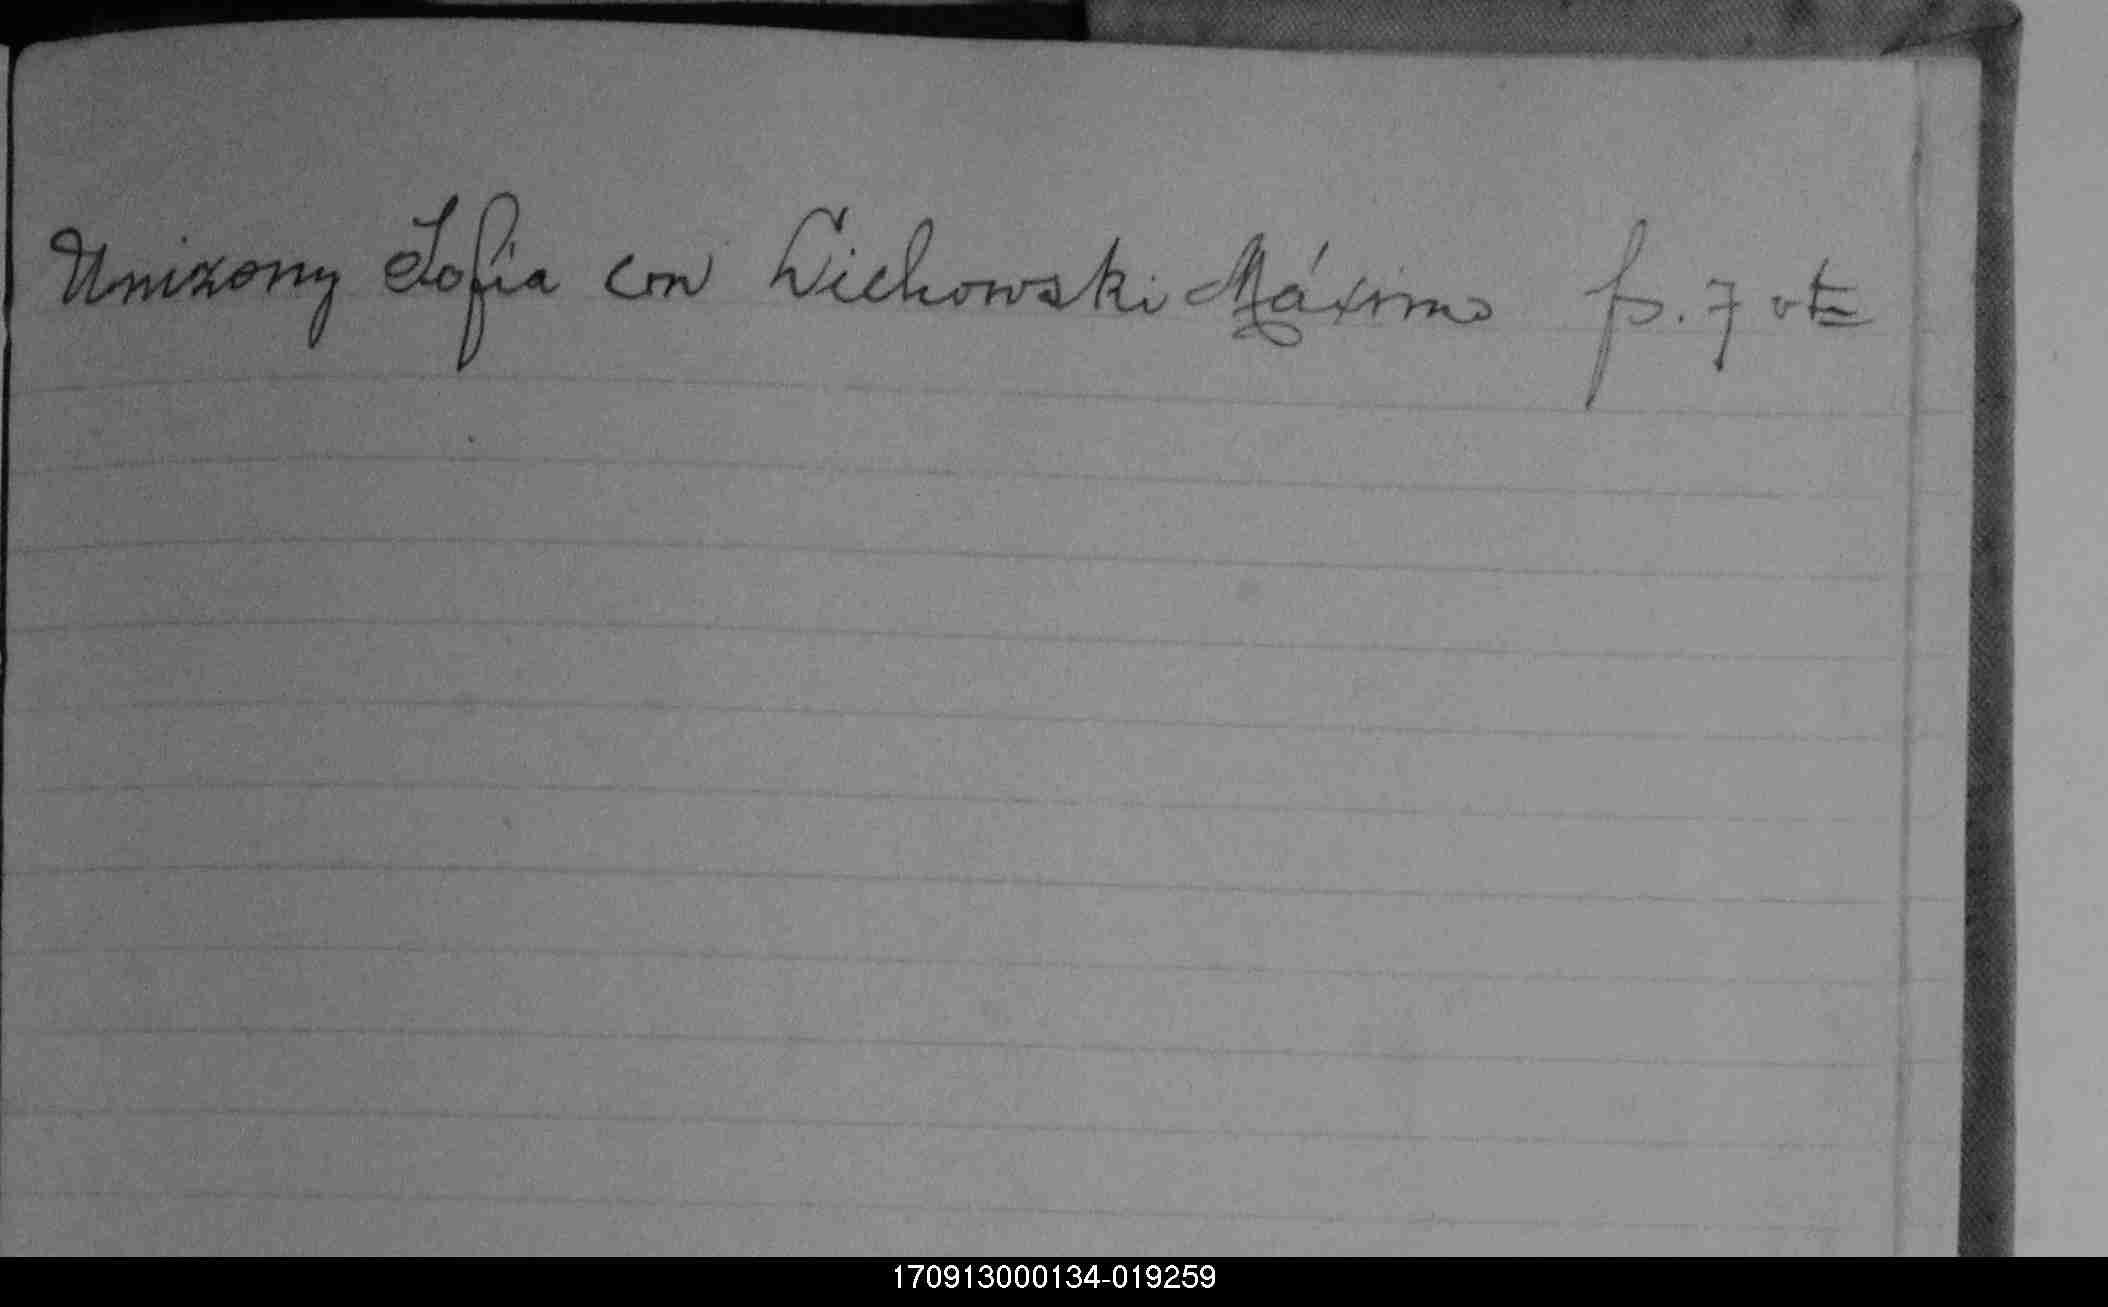 Unizony Sofía con Cichowski Máximo fs. 7 vta
170913000134-019259